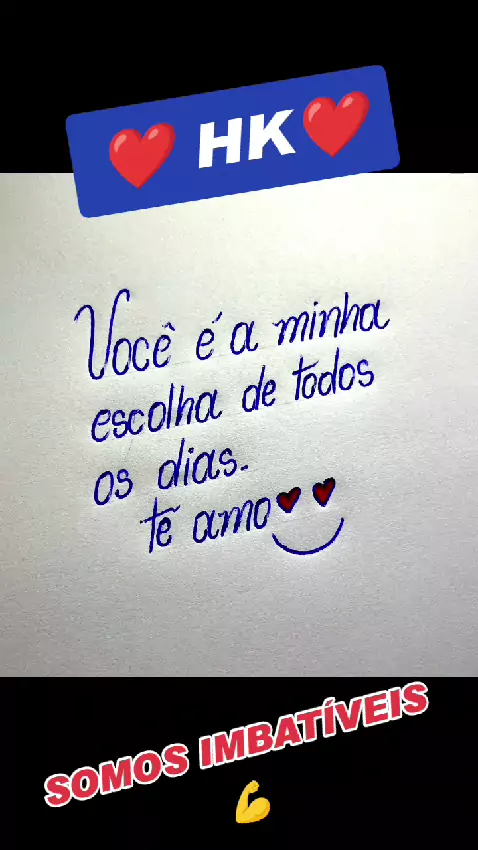 ❤️ HK ❤️
Você é a minha
escolha de todos
os dias.
te amo
SOMOS IMBATÍVEIS
💪